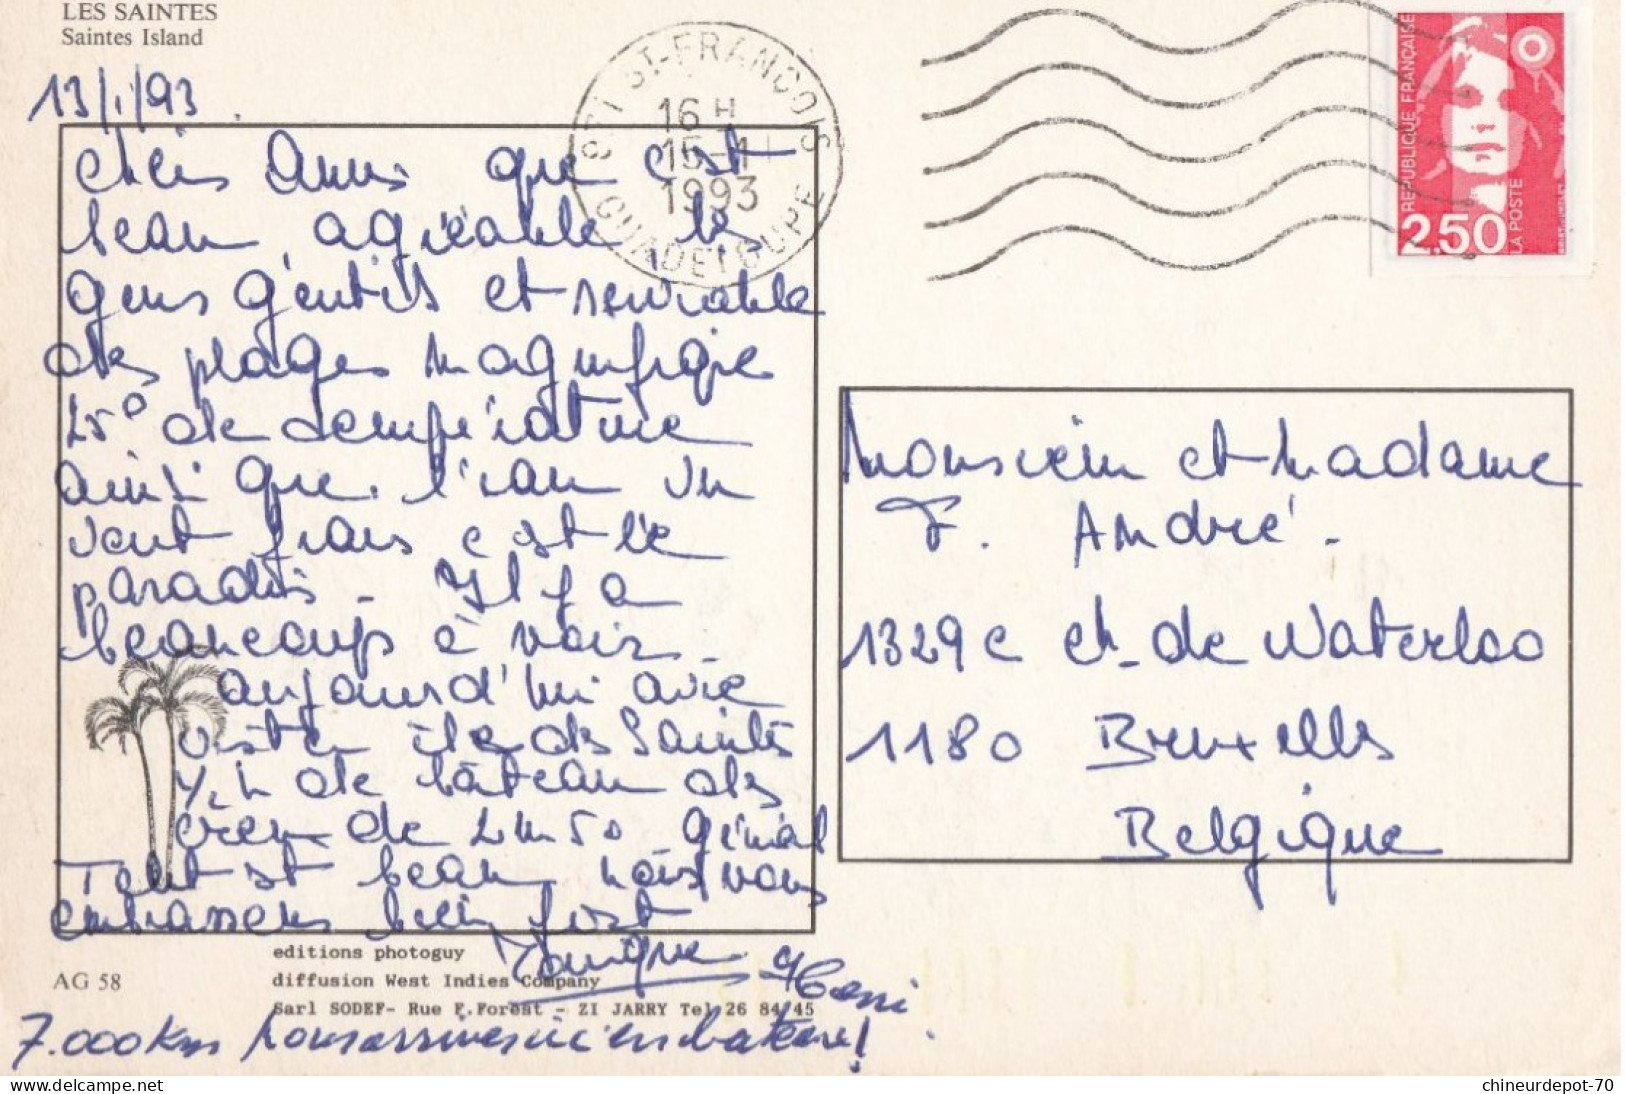 LES SAINTES
Saintes Island
13/1/93
ST-FRANCOIS
16 H
15-1
1993
GUADELOUPE
REPUBLIQUE FRANÇAISE
LA POSTE
2.50
chers Amis que c'est
beau, agréable les
gens gentils et serviable
des plages magnifique
25° de température
ainsi que l'eau un
vent frais c'est le
paradis - Il y a
beaucoup à voir -
aujourd'hui avie
visiter île des Saintes
de bâteau des
creux de 2m50 génial
Tout est beau, nous vous
embrassons bien fort
Monique
Monsieur et Madame
F. André.
1329c ch. de Waterloo
1180 Bruxelles
Belgique
editions photoguy
AG 58
diffusion West Indies Company
Sarl SODEF- Rue F.Forest - ZI JARRY Tel 26 84 45
7.000 Km bateau!
chineurdepot-70